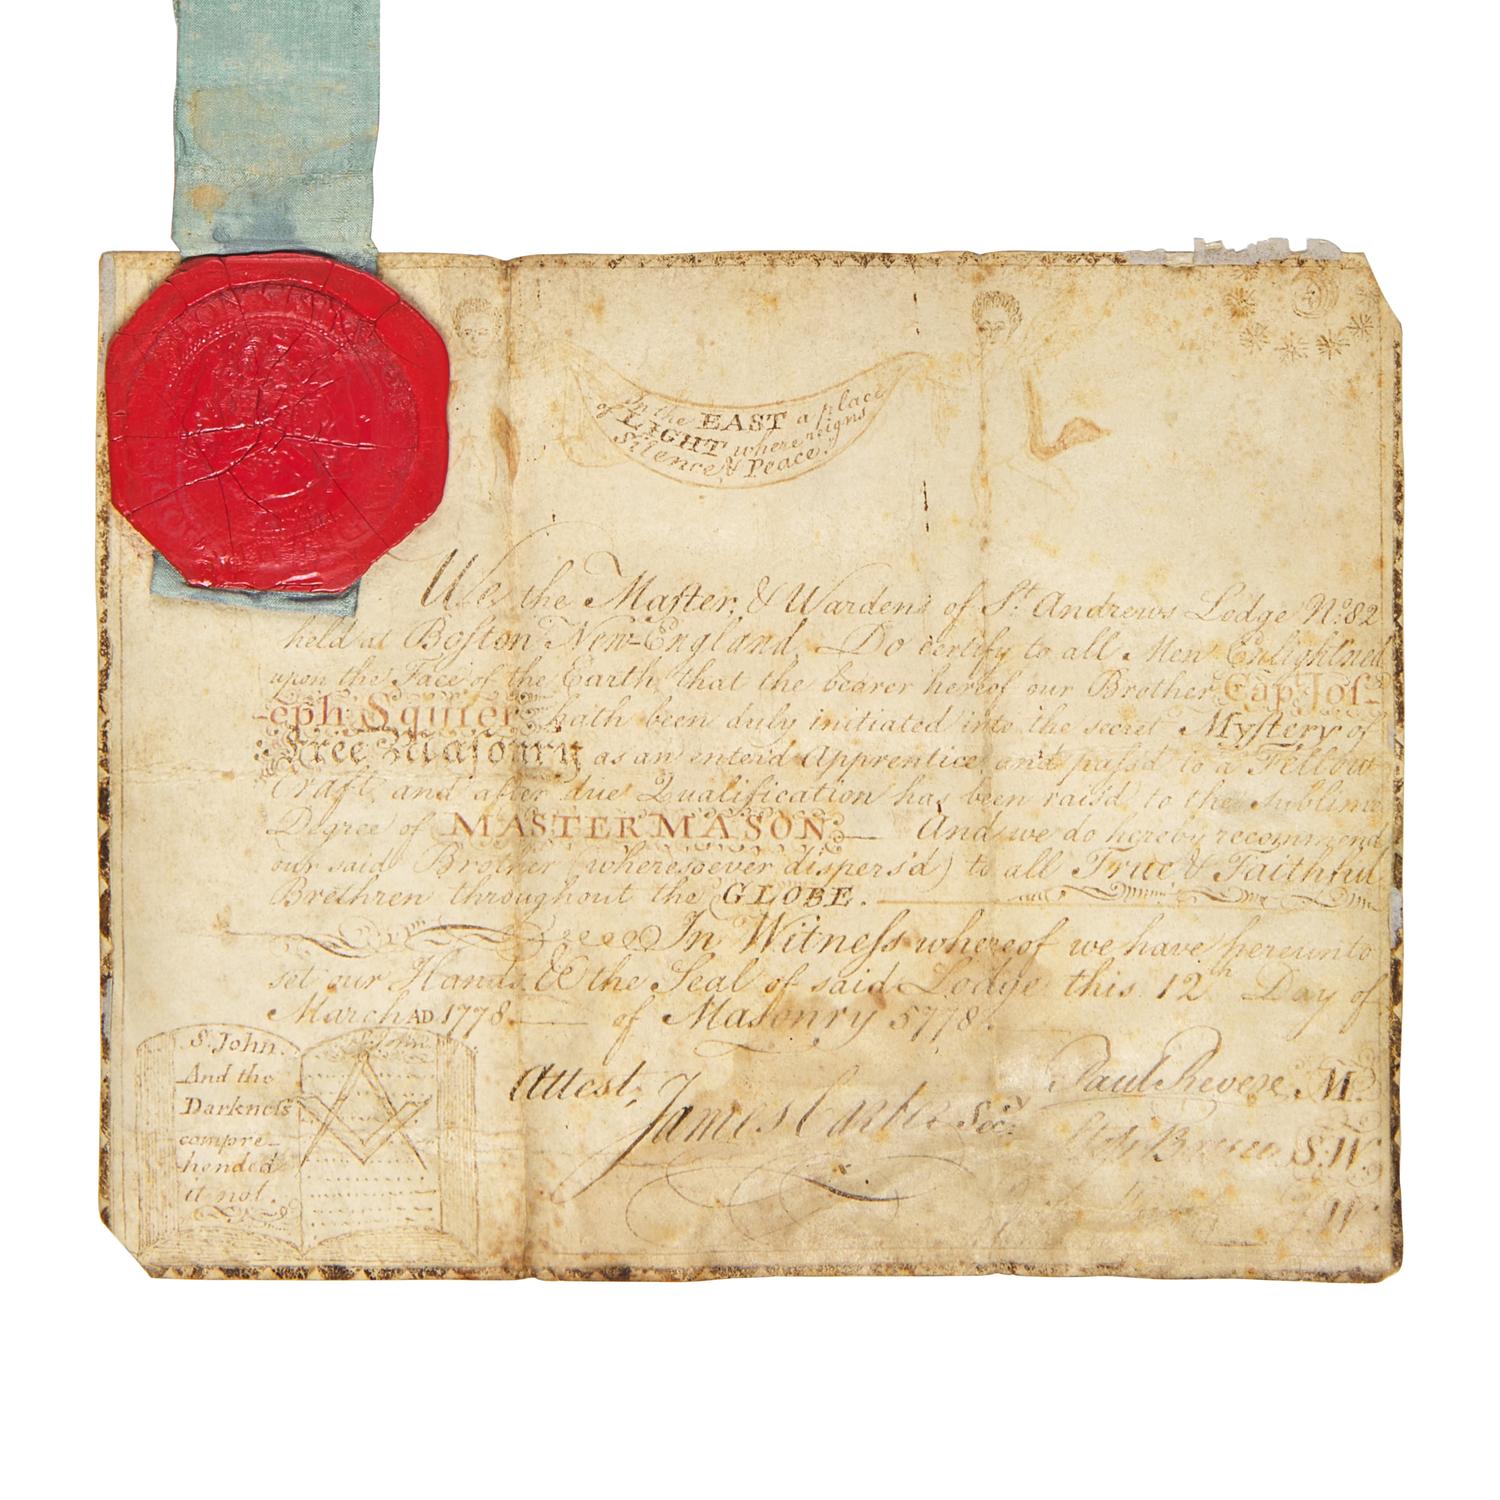 In the EAST a place
of LIGHT where reigns
Silence & Peace.
We the Maſter, & Wardens of St. Andrews Lodge No. 82
held at Boſton New-England, Do certify to all Men Enlightned
upon the Face of the Earth, that the bearer hereof our Brother Cap. Joſ-
eph Squier hath been duly initiated into the secret Myſtery of
Free Maſonry as an enter'd Apprentice, and paſs'd to a Fellow
Craft, and after due Qualification has been rais'd to the Sublime
Degree of MASTER MASON, And we do hereby recommend
our said Brother (wheresoever dispers'd) to all True & Faithful
Brethren throughout the GLOBE.
In Witneſs whereof we have hereunto
set our Hands & the Seal of said Lodge this 12th Day of
March AD 1778 of Masonry 5778.
S. John.
And the
Darkneſs
compre-
hended
it not.
S. John
Attest, James Carter Secy.
Paul Revere M.
S.W.
J.W.